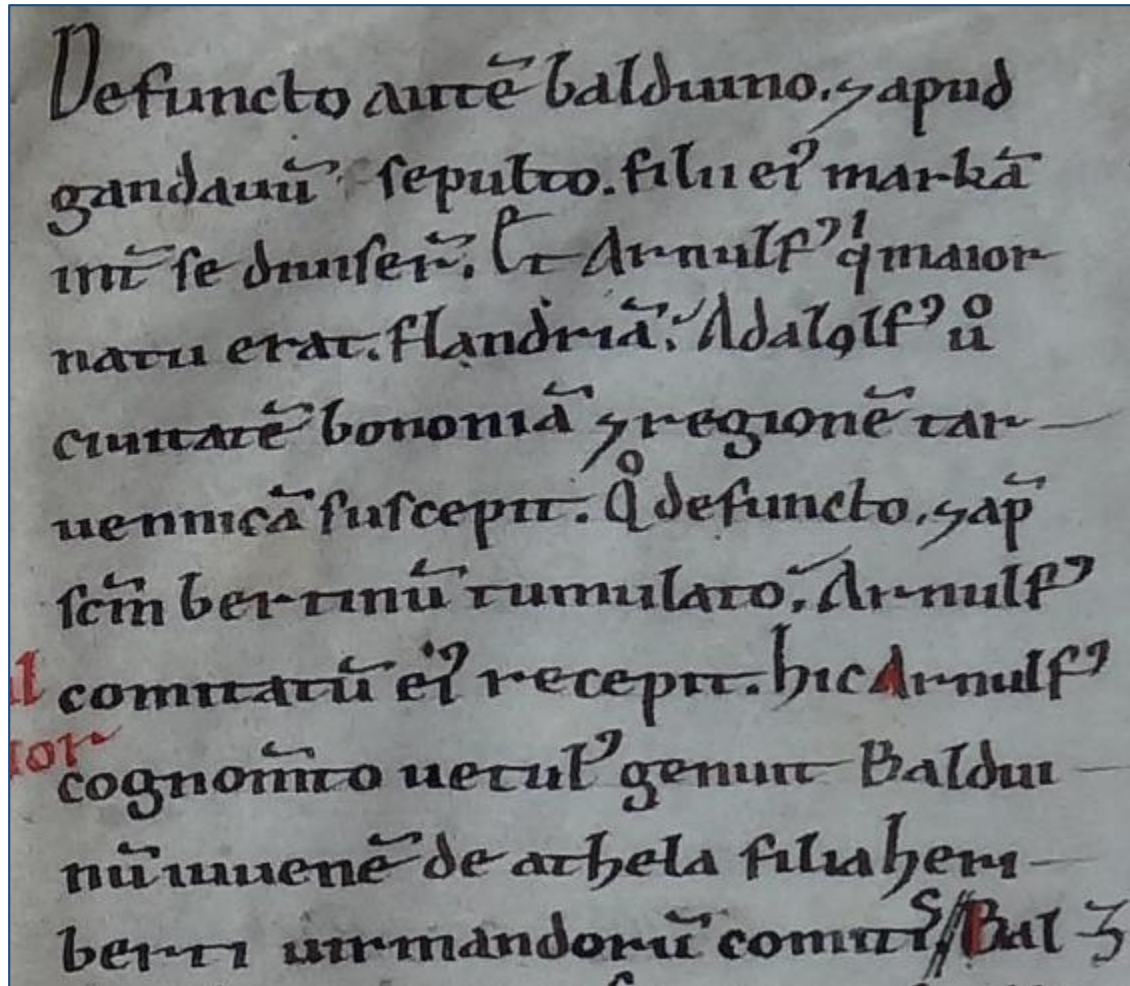 Defuncto autē balduino. ⁊ apud
gandauū sepulto. filii eiꝰ markā
int̄ se diuiser̄. Et Arnulfꝰ qⁱ maior
natu erat. flandriā. Adalolfꝰ ů
ciuitatē bononiā ⁊ regionē tar-
uennicā suscepit. Q̊ defuncto. ⁊ ap̄
sc̄m bertinū tumulato. Arnulfꝰ
comitatū eiꝰ recepit. hic Arnulfꝰ
cognom̄to uetulꝰ genuit Baldui-
nū iuuenē de athela filia heri-
berti uirmandorū comitis // Bal